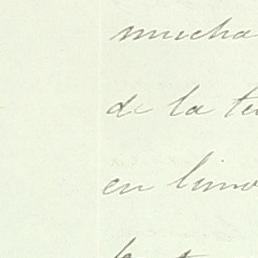 mucha
de la te
en limo